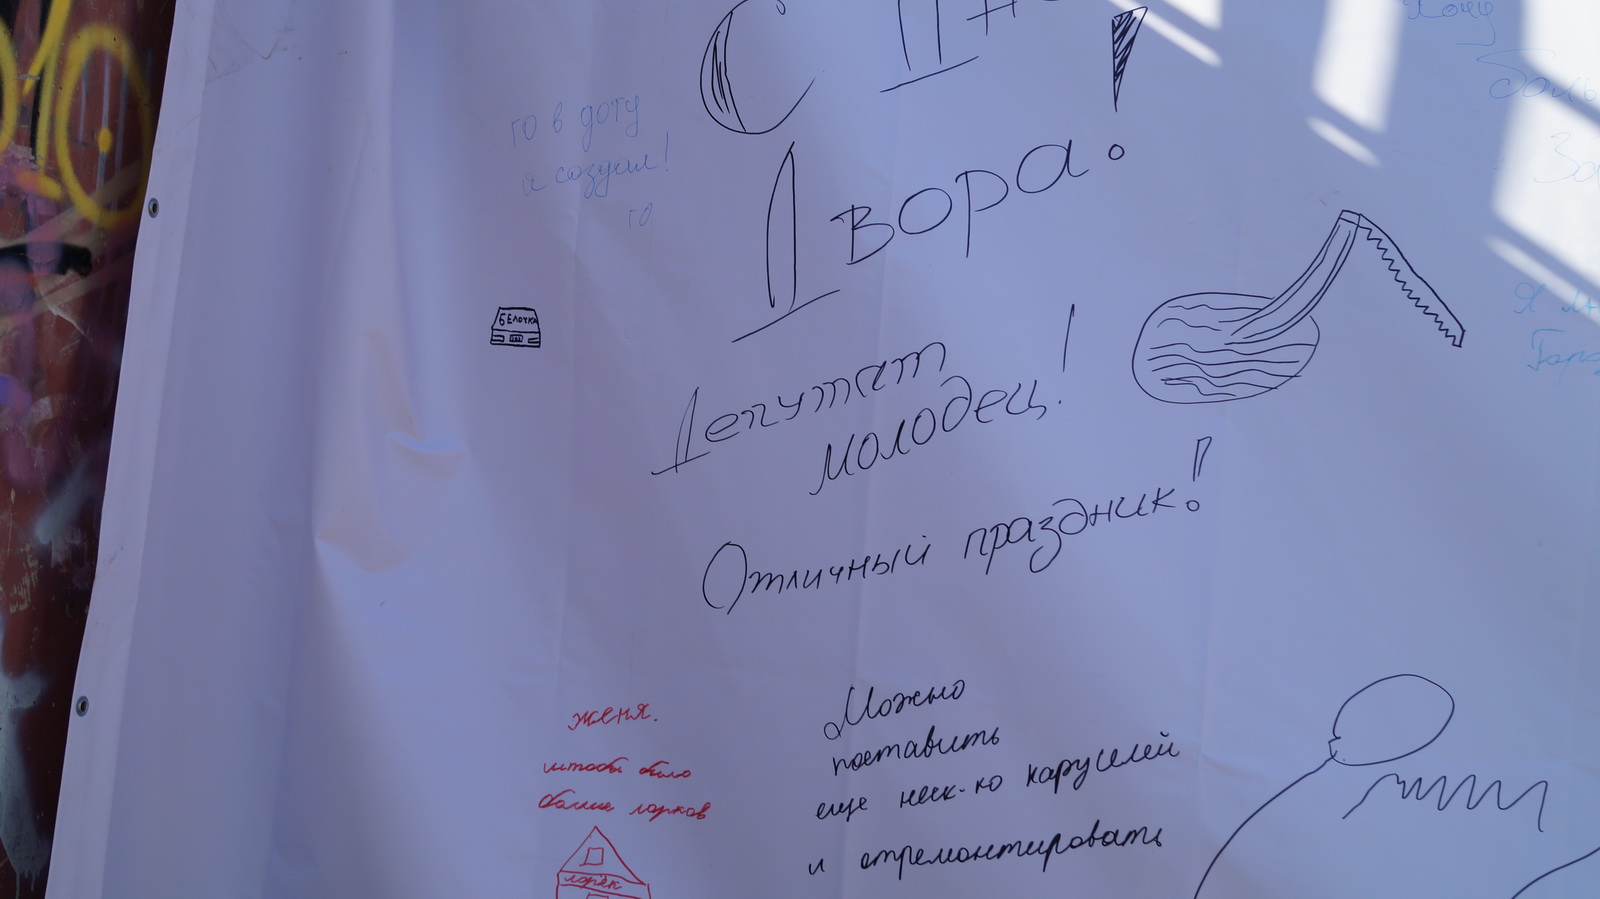 С Дн
Двора!
го в доту
я создал!
го
БЕЛОЧКА
Депутат
молодец!
Отличный праздник!
женя.
штобы было
больше ларков
ларёк
Можно
поставить
еще неск-ко каруселей
и отремонтировать
Хочу
боль
За
Я лю
Горо